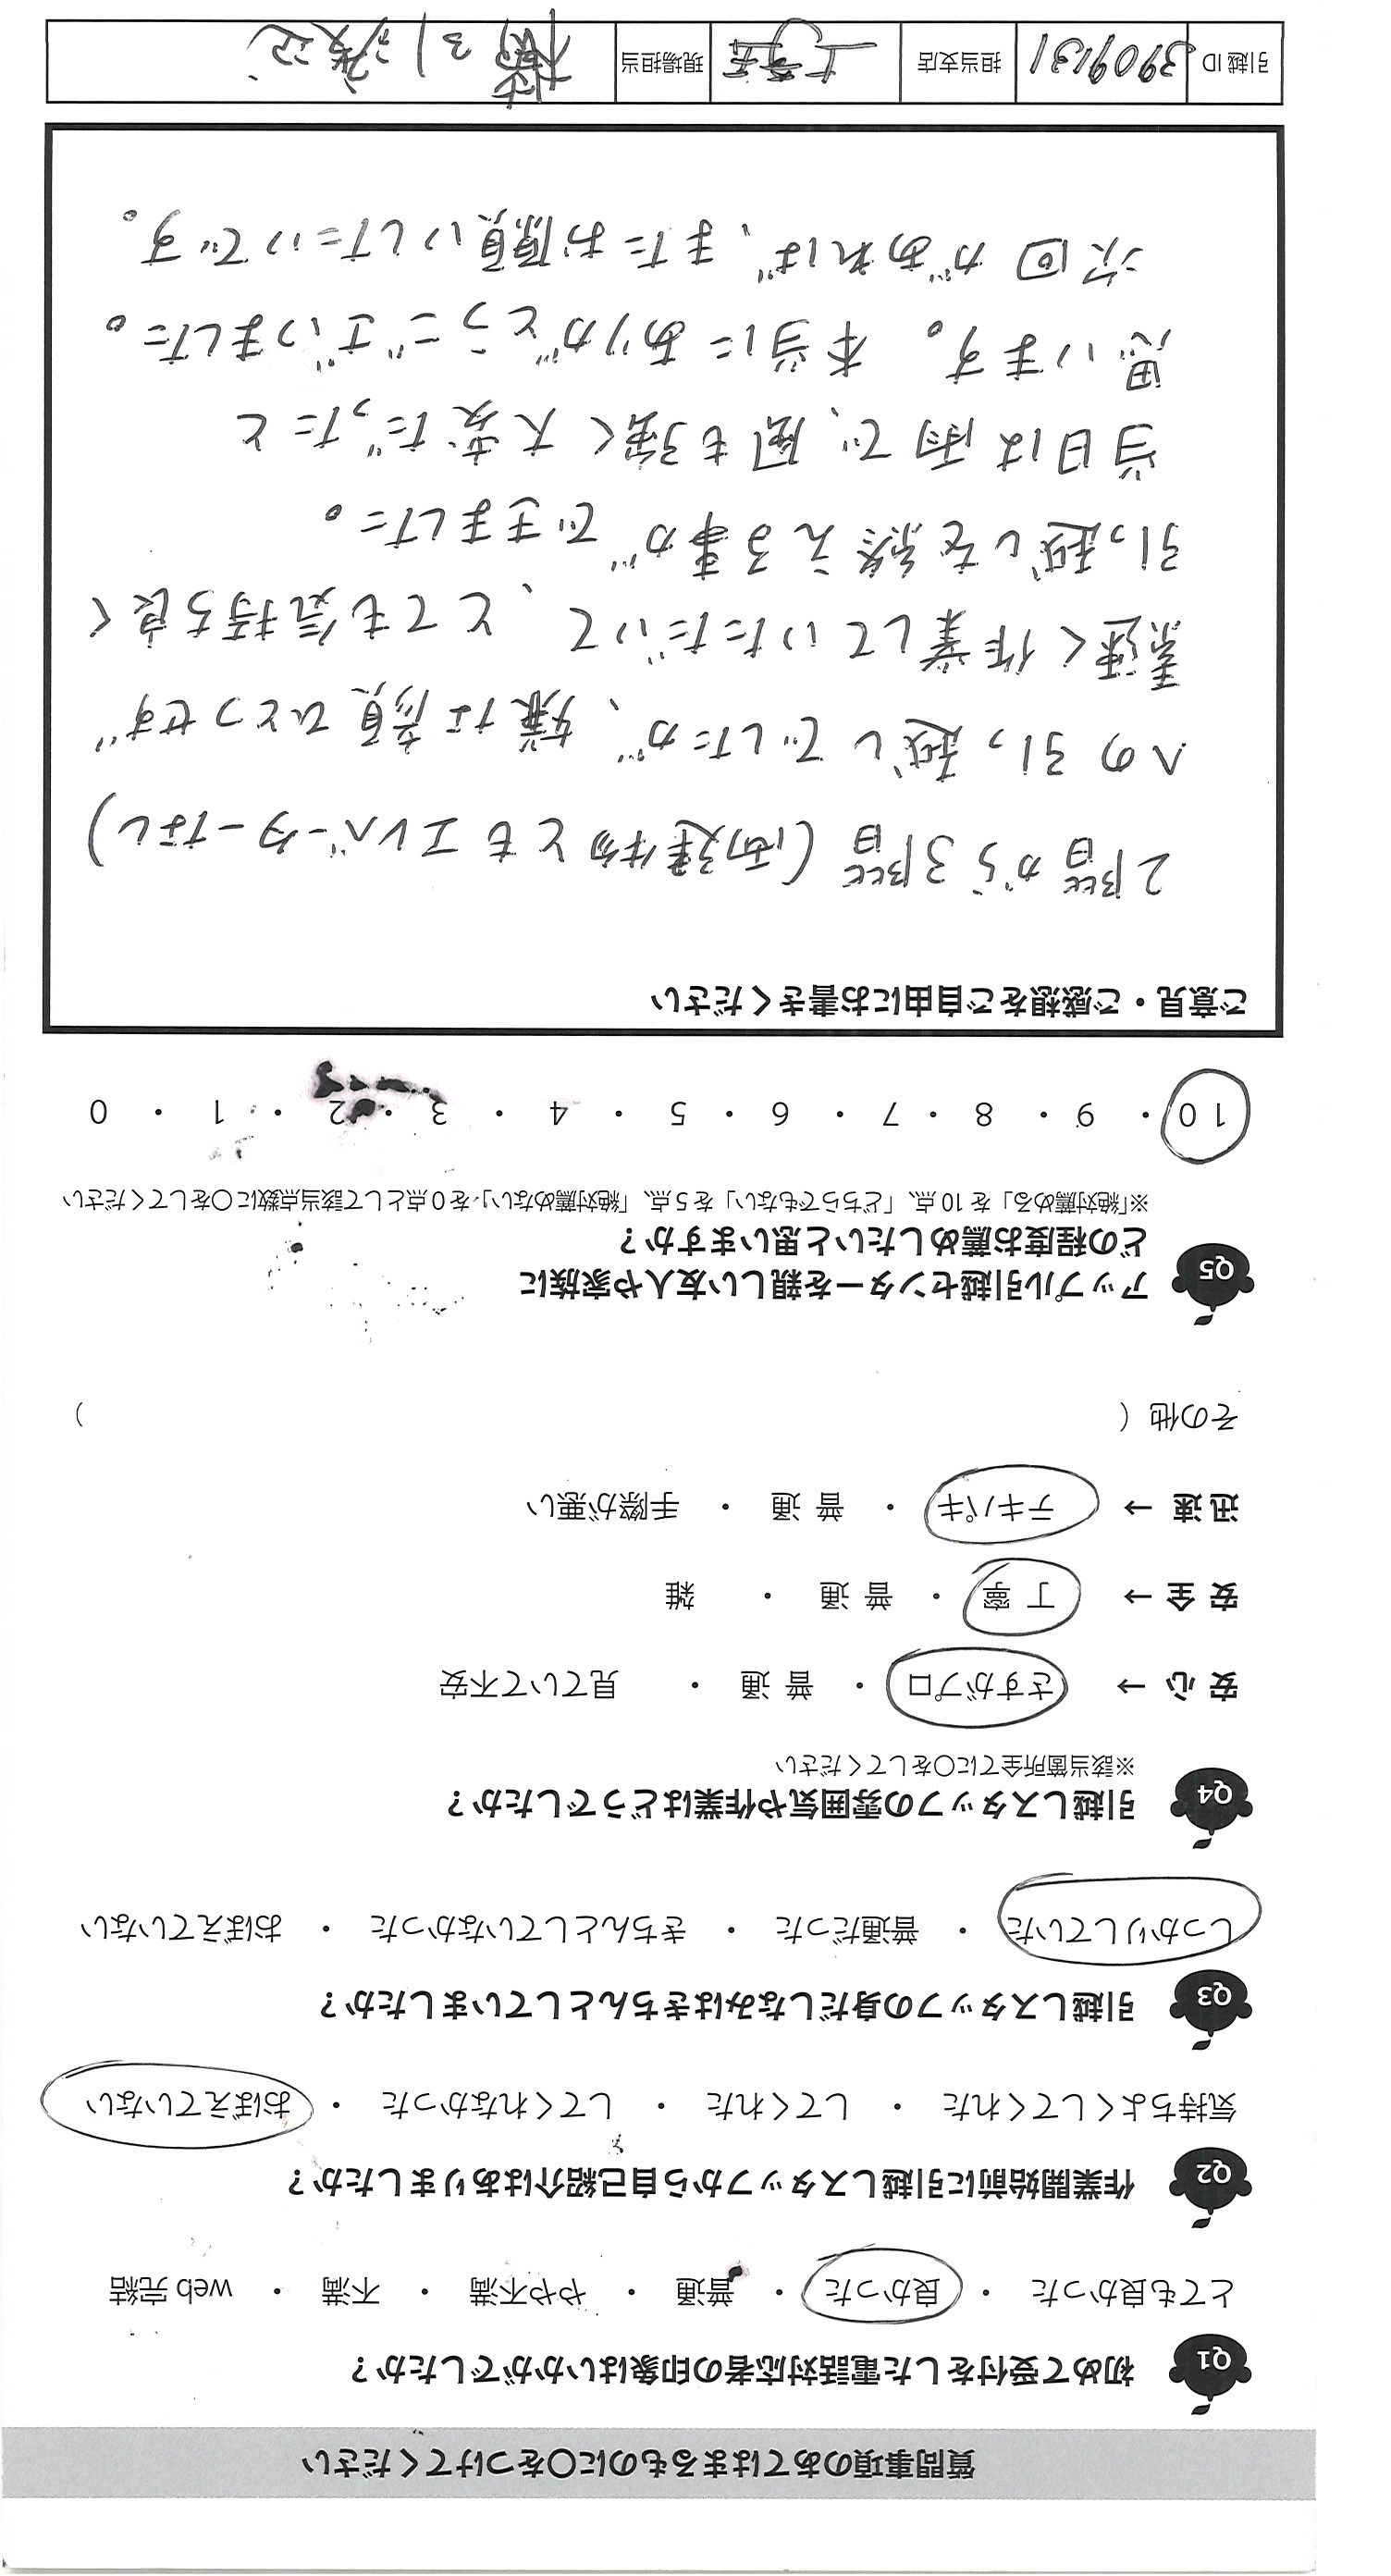 質問事項のあてはまるものに〇をつけてください
Q1 初めて受付をした電話対応者の印象はいかがでしたか？
とても良かった ・ 良かった ・ 普通 ・ やや不満 ・ 不満 ・ web 完結
Q2 作業開始前に引越しスタッフから自己紹介はありましたか？
気持ちよくしてくれた ・ してくれた ・ してくれなかった ・ おぼえていない
Q3 引越しスタッフの身だしなみはきちんとしていましたか？
しっかりしていた ・ 普通だった ・ きちんとしていなかった ・ おぼえていない
Q4 引越しスタッフの雰囲気や作業はどうでしたか？
※該当箇所全てに〇をしてください
安心 → さすがプロ ・ 普通 ・ 見ていて不安
安全 → 丁寧 ・ 普通 ・ 雑
迅速 → テキパキ ・ 普通 ・ 手際が悪い
その他 （ ）
Q5 アップル引越センターを親しい友人や家族に
どの程度お薦めしたいと思いますか？
※「絶対薦める」を 10 点、「どちらでもない」を 5 点、「絶対薦めない」を 0 点として該当点数に〇をしてください
10 ・ 9 ・ 8 ・ 7 ・ 6 ・ 5 ・ 4 ・ 3 ・ 2 ・ 1 ・ 0
ご意見・ご感想をご自由にお書きください
2階から3階 (両建物ともエレベーターなし)
への引っ越しでしたが、嫌な顔ひとつせず
素速く作業していただいて、とても気持ち良く
引っ越しを終える事ができました。
当日は雨で、風も強く大変だったと
思います。本当にありがとうございました。
次回があれば、またお願いしたいです。
引越 ID 3909131 担当支店 現場担当